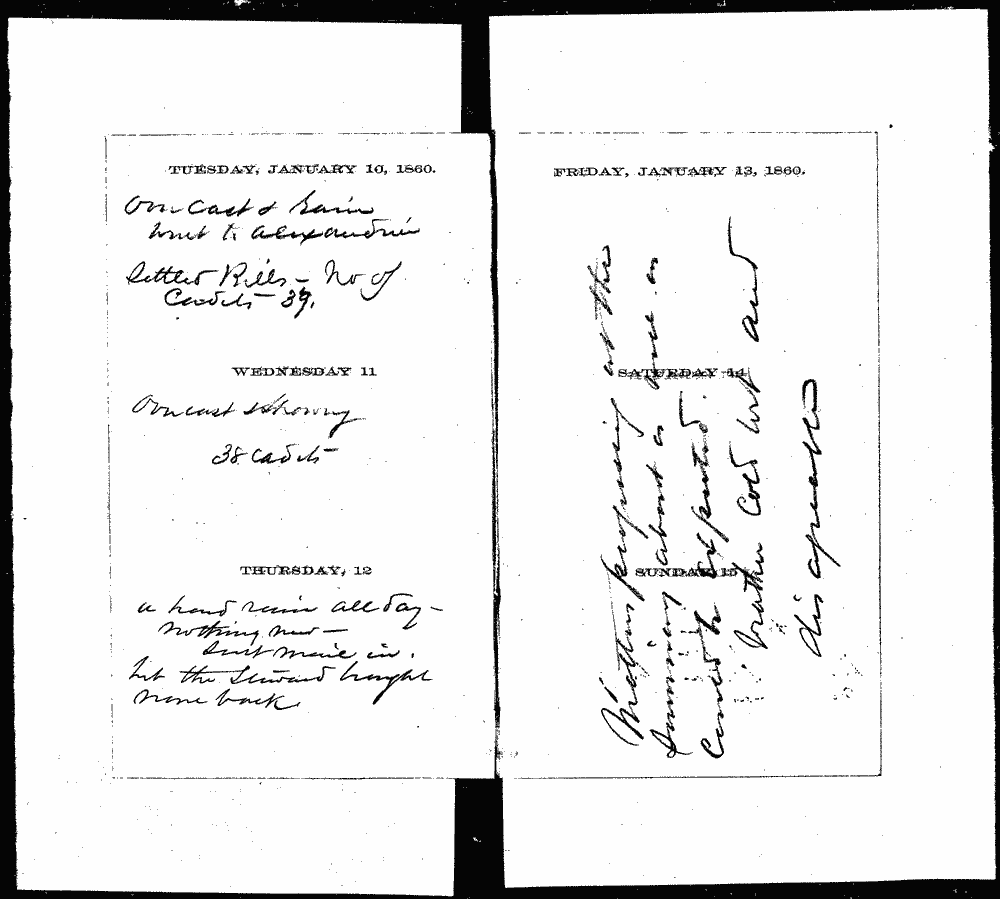 TUESDAY, JANUARY 10, 1860.
Overcast & Rain
Went to Alexandria
Settled Bills - No of
Cadets - 39.
WEDNESDAY 11
Overcast & Showery
38 Cadets
THURSDAY, 12
a hard rain all day -
nothing new -
Sent mail in.
but the Steward brought
none back
FRIDAY, JANUARY 13, 1860.
SATURDAY 14
SUNDAY 15
Matters progressing at the
Seminary about as well as
could be expected.
Weather cold wet and
disagreeable